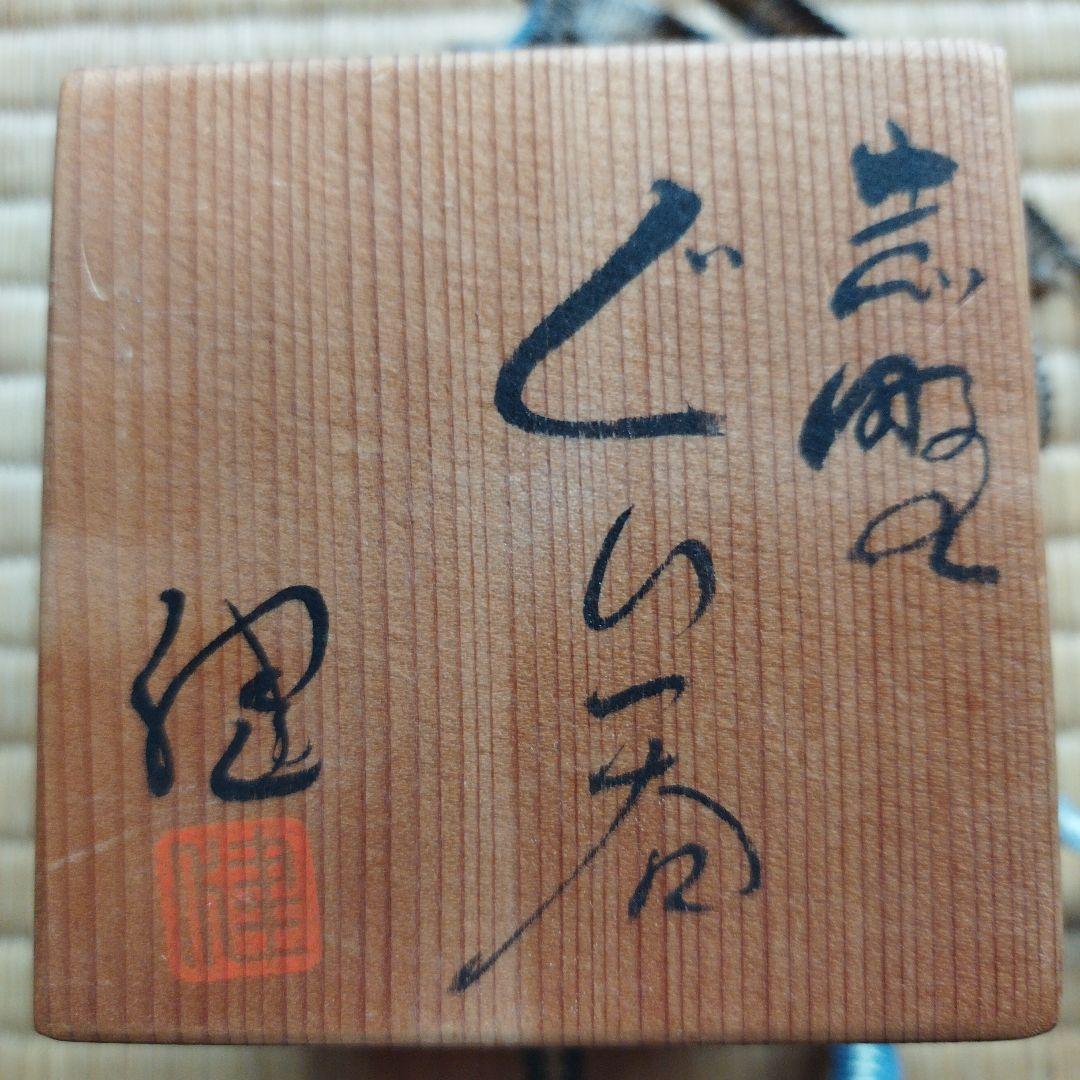 志野
ぐい呑
健
健